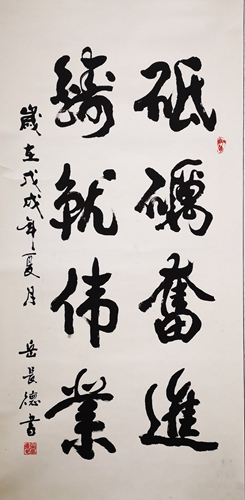 砥礪奮進
鑄就伟業
歲在戊戌年夏月
岳長德書